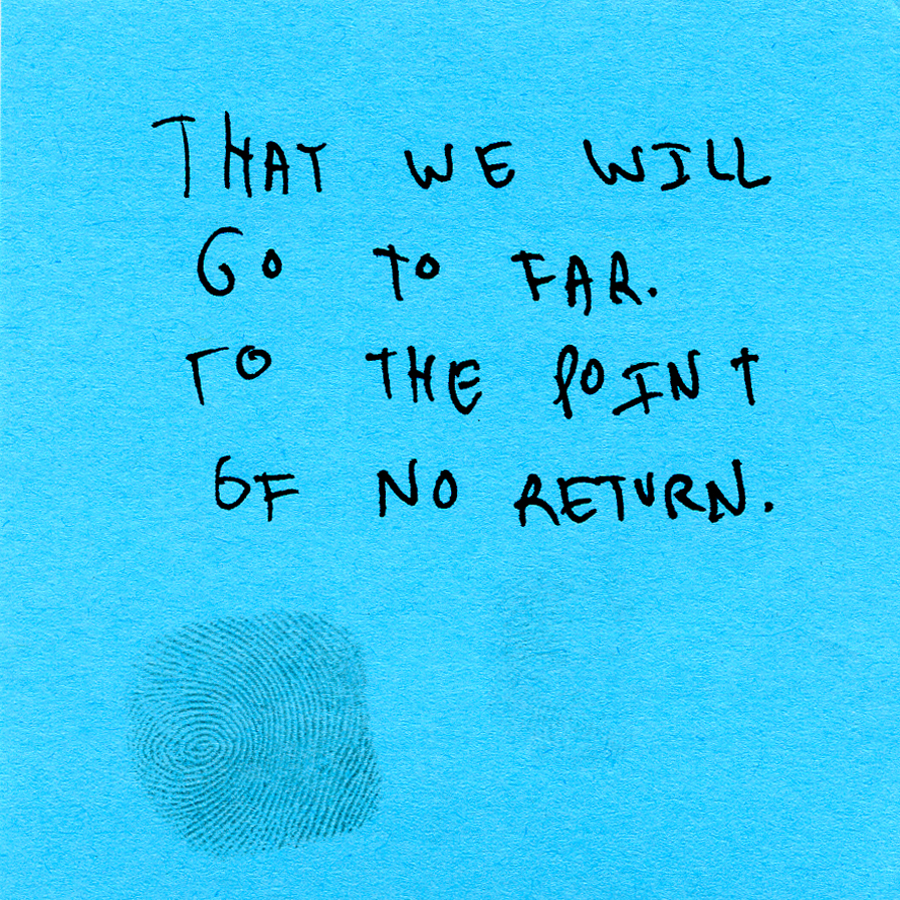 THAT WE WILL
GO TO FAR.
TO THE POINT
OF NO RETURN.